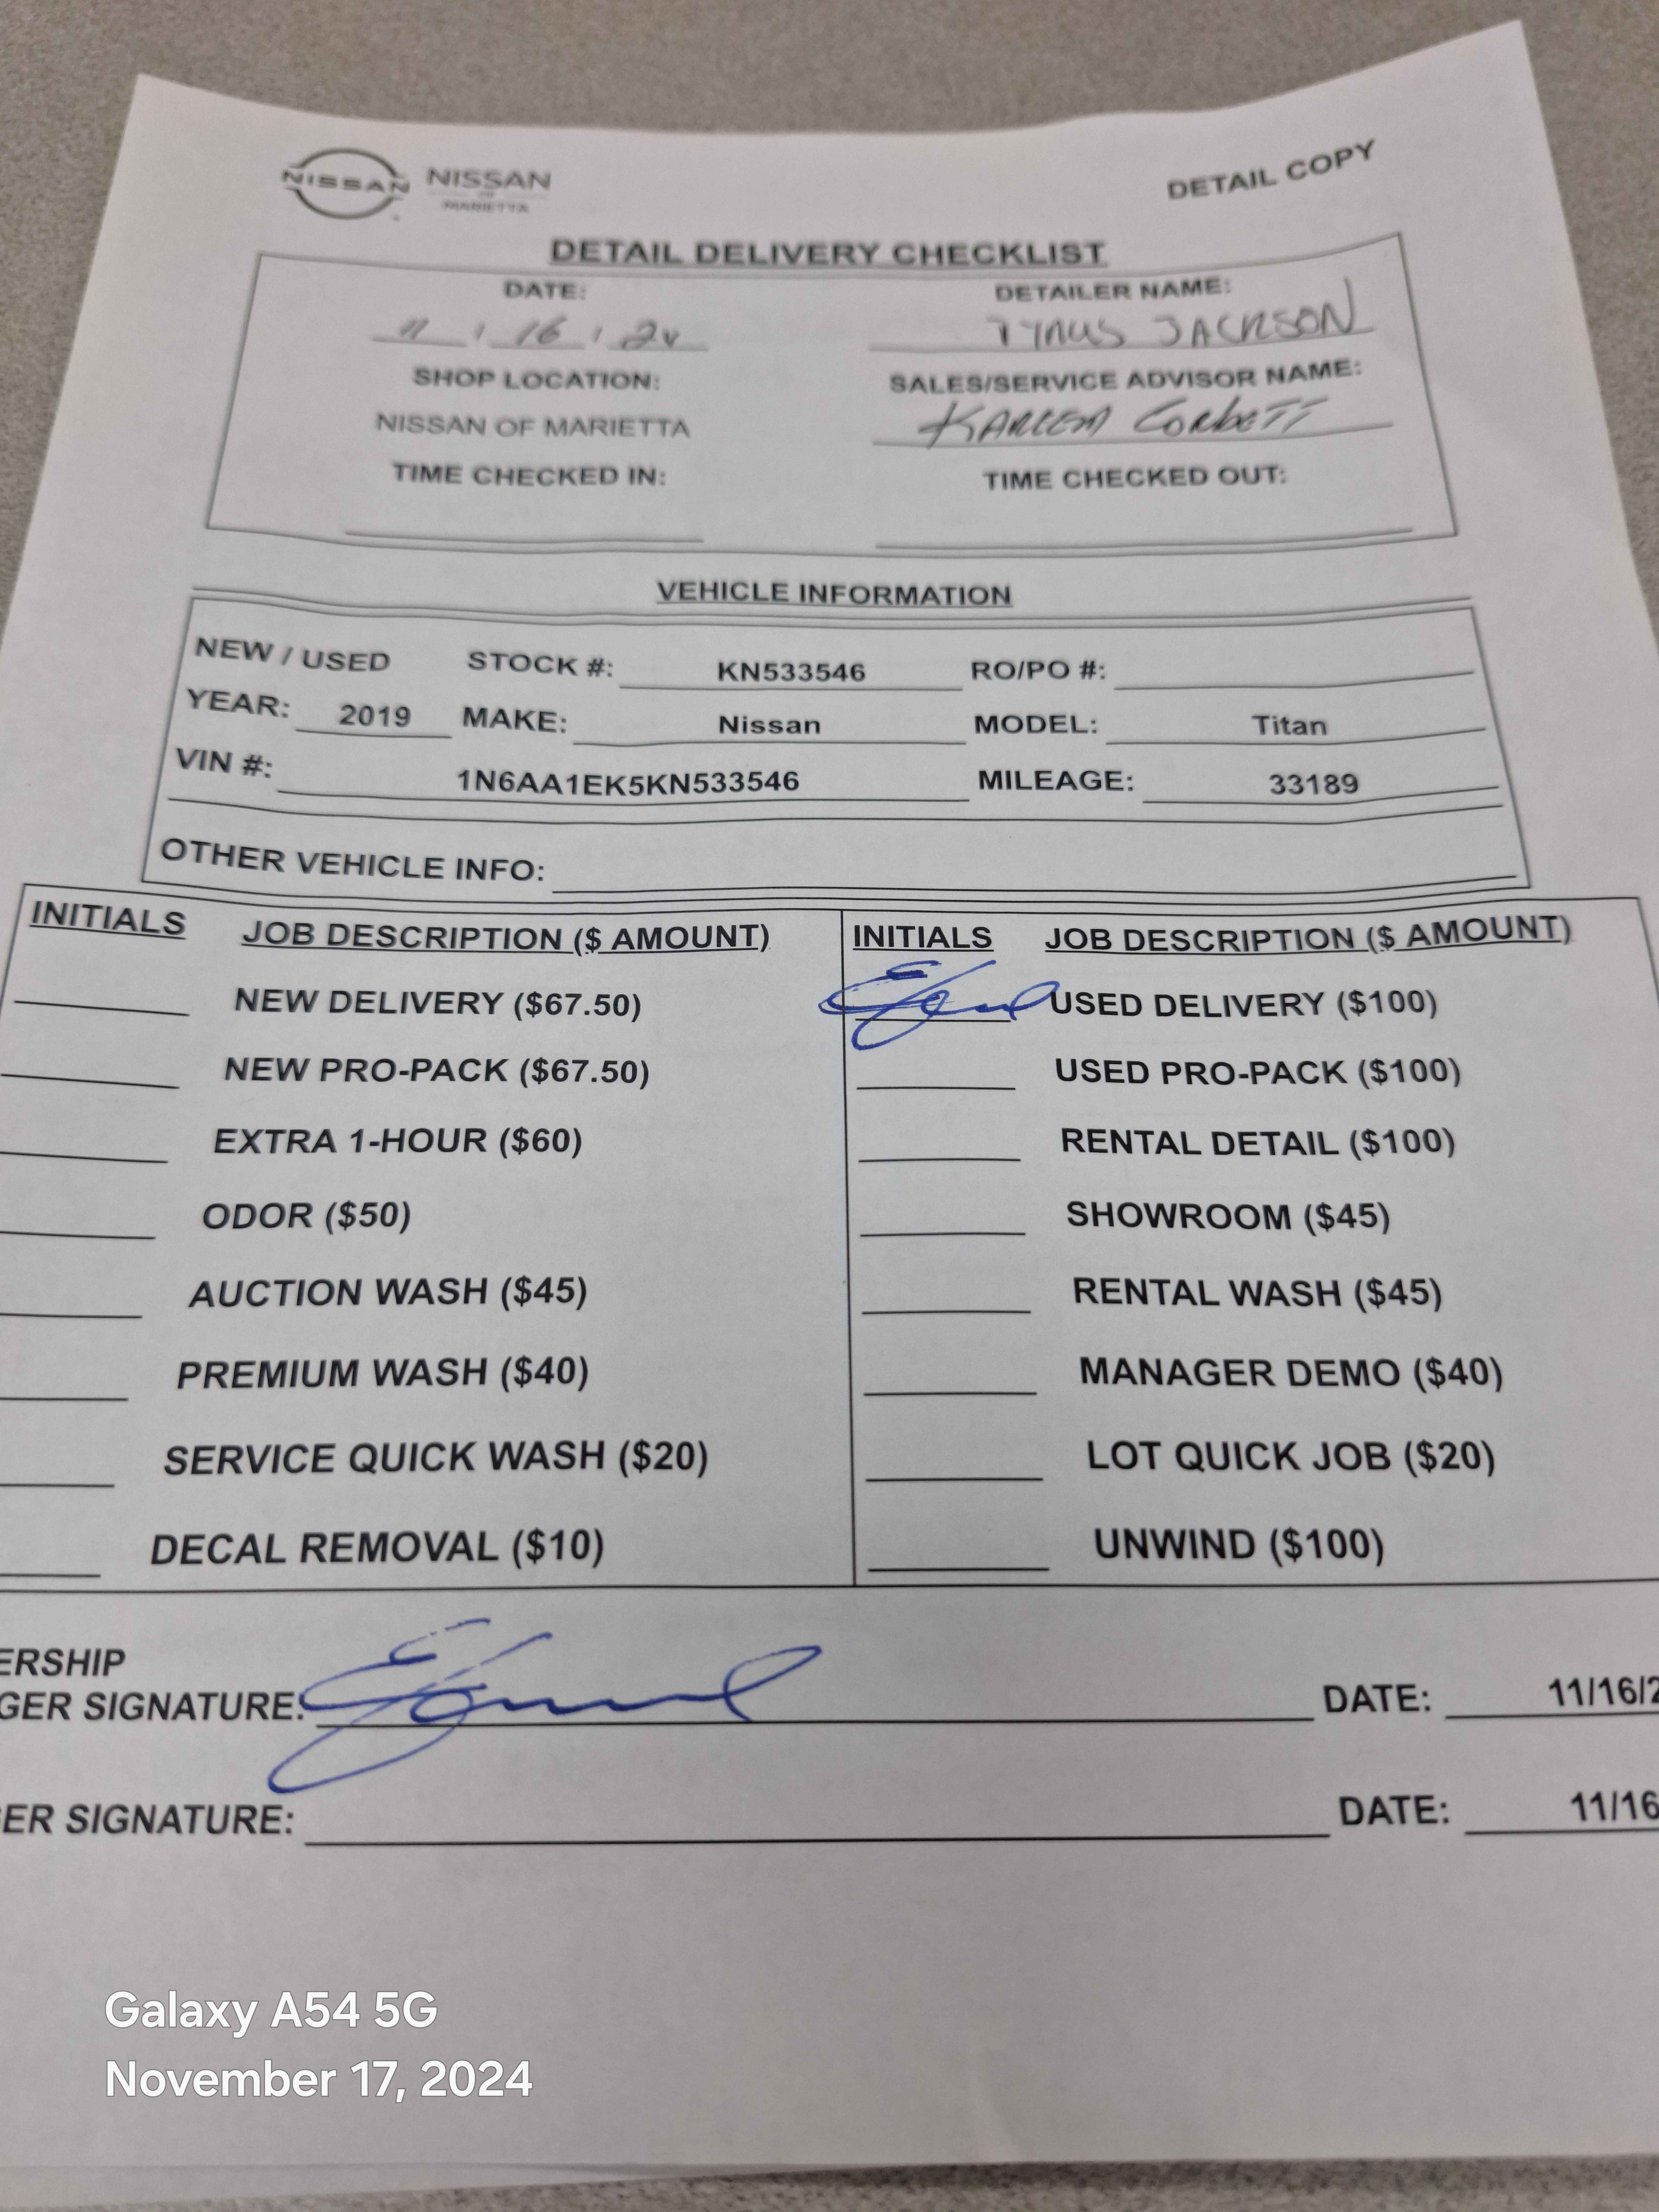 NISSAN NISSAN
OF
MARIETTA
DETAIL COPY
DETAIL DELIVERY CHECKLIST
DATE: DETAILER NAME:
11 / 16 / 24 TYRUS JACKSON
SHOP LOCATION: SALES/SERVICE ADVISOR NAME:
NISSAN OF MARIETTA KAREEM CORBETT
TIME CHECKED IN: TIME CHECKED OUT:
VEHICLE INFORMATION
NEW / USED STOCK #: KN533546 RO/PO #:
YEAR: 2019 MAKE: Nissan MODEL: Titan
VIN #: 1N6AA1EK5KN533546 MILEAGE: 33189
OTHER VEHICLE INFO:
INITIALS JOB DESCRIPTION ($ AMOUNT) INITIALS JOB DESCRIPTION ($ AMOUNT)
NEW DELIVERY ($67.50) USED DELIVERY ($100)
NEW PRO-PACK ($67.50) USED PRO-PACK ($100)
EXTRA 1-HOUR ($60) RENTAL DETAIL ($100)
ODOR ($50) SHOWROOM ($45)
AUCTION WASH ($45) RENTAL WASH ($45)
PREMIUM WASH ($40) MANAGER DEMO ($40)
SERVICE QUICK WASH ($20) LOT QUICK JOB ($20)
DECAL REMOVAL ($10) UNWIND ($100)
ERSHIP
GER SIGNATURE: DATE: 11/16/2
ER SIGNATURE: DATE: 11/16
Galaxy A54 5G
November 17, 2024